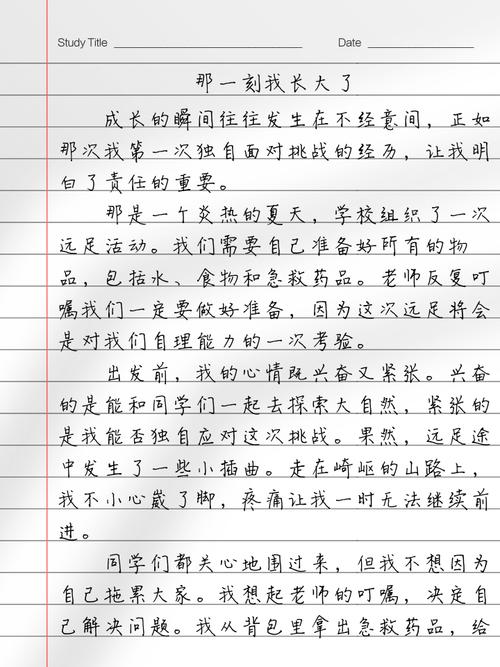 Study Title Date
那一刻我长大了
成长的瞬间往往发生在不经意间，正如
那次我第一次独自面对挑战的经历，让我明
白了责任的重要。
那是一个炎热的夏天，学校组织了一次
远足活动。我们需要自己准备好所有的物
品，包括水、食物和急救药品。老师反复叮
嘱我们一定要做好准备，因为这次远足将会
是对我们自理能力的一次考验。
出发前，我的心情既兴奋又紧张。兴奋
的是能和同学们一起去探索大自然，紧张的
是我能否独自应对这次挑战。果然，远足途
中发生了一些小插曲。走在崎岖的山路上，
我不小心崴了脚，疼痛让我一时无法继续前
进。
同学们都关心地围过来，但我不想因为
自己拖累大家。我想起老师的叮嘱，决定自
己解决问题。我从背包里拿出急救药品，给